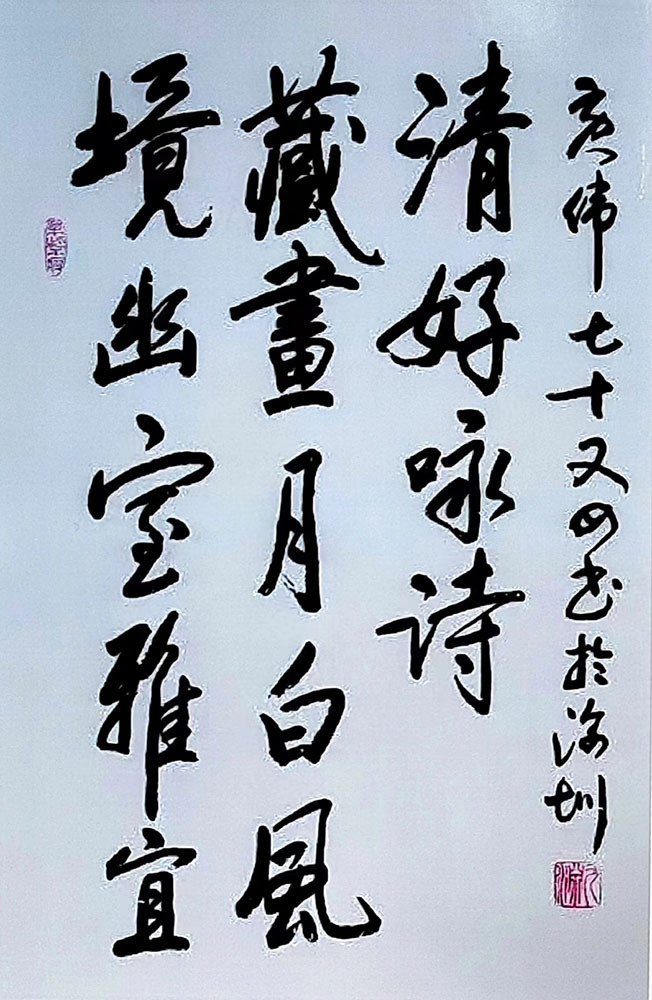 境幽室雅宜
藏畫月白風
清好咏诗
伟七十又四书於深圳